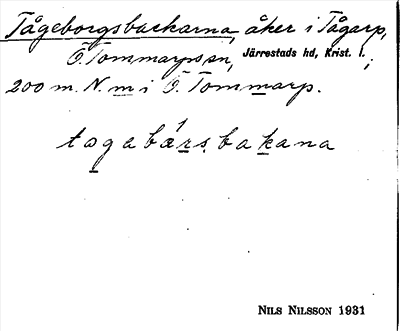 Tågeborgsbackarna, åker i Tågarp,
Ö. Tommarps sn, Järrestads hd, Krist. l.;
200 m. N. m i Ö. Tommarp.
tøgabársbakana
NILS NILSSON 1931